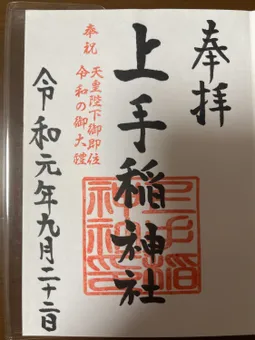 奉拝
上手稲神社
奉祝 天皇陛下御即位
令和の御大禮
令和元年九月二十二日
上手稲
神社印